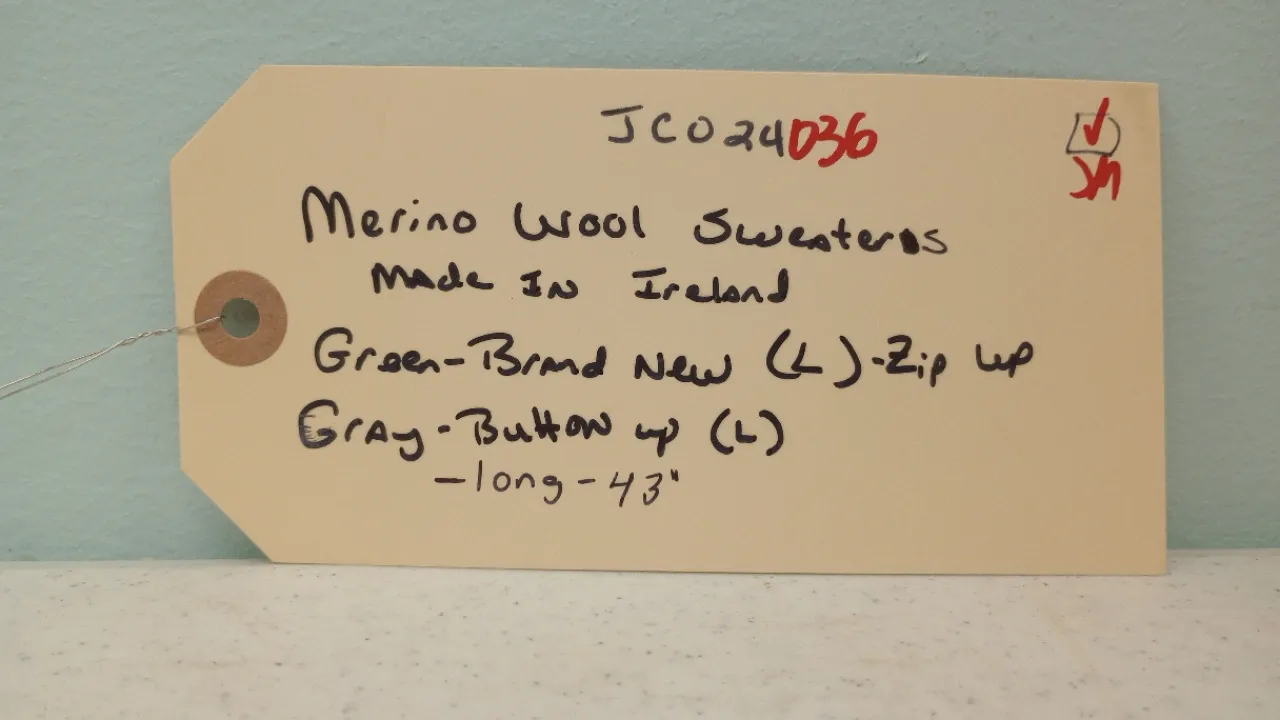 JCO24036
JM
Merino Wool Sweaters
Made In Ireland
Green-Brand New (L)-Zip up
Gray-Button up (L)
-long-43"